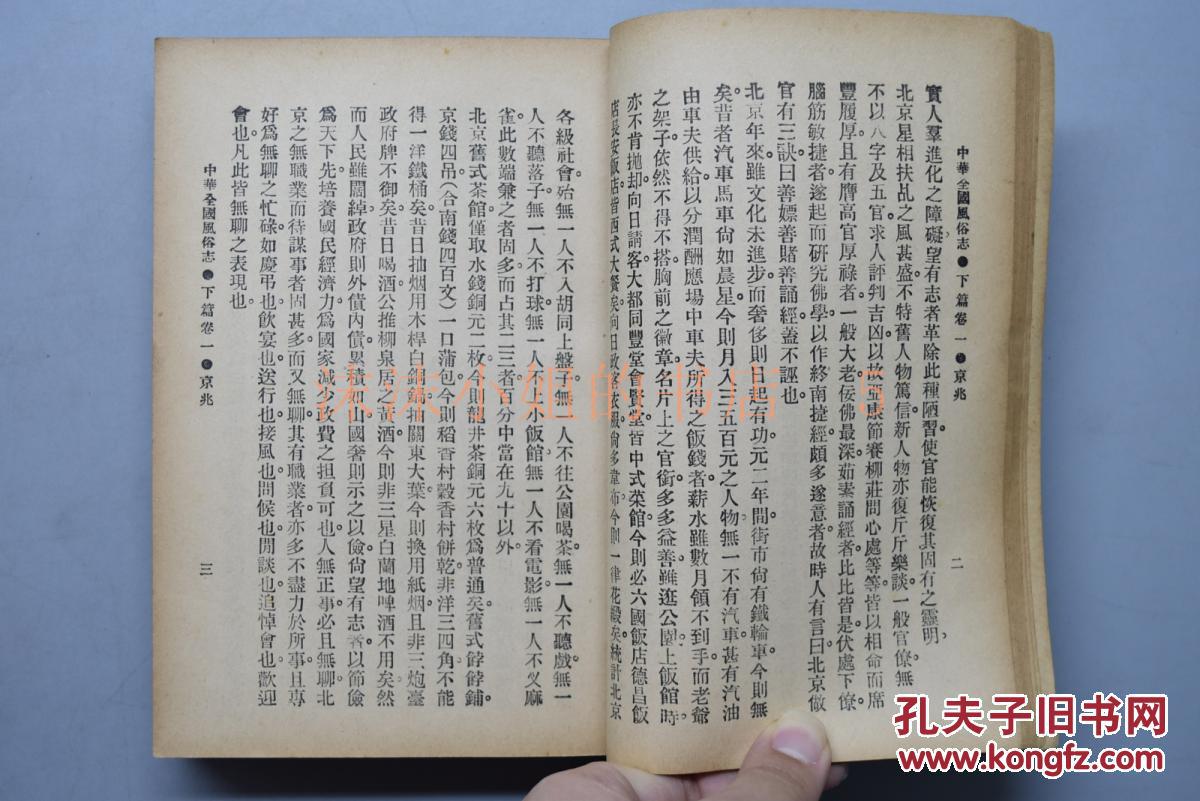 中華全國風俗志 下篇卷一 京兆
二
實人羣進化之障礙。望有志者革除此種陋習使官能恢復其固有之靈明。
北京星相扶乩之風甚盛。不特舊人物篤信新人物亦復斤斤樂談一般官僚無
不以八字及五官求人評判吉凶以故亞康節賽柳莊問心處等等皆以相命而席
豐履厚且有膺高官厚祿者。一般大老佞佛最深茹素誦經者比比皆是伏處下僚
腦筋敏捷者遂起而研究佛學以作終南捷經頗多遂意者故時人有言曰北京做
官有三訣曰善嫖善賭善誦經蓋不誣也
北京年來雖文化未進步而奢侈則日起有功元二年間街市尙有鐵輪車今則無
矣昔者汽車馬車尙如晨星今則月入三五百元之人物無一不有汽車甚有汽油
由車夫供給以分潤酬應場中車夫所得之飯錢者薪水雖數月領不到手而老爺
之架子依然不得不搭胸前之徽章名片上之官銜多多益善雖逛公園上飯館時
亦不肯抛却向日請客大都同豐堂會賢堂皆中式菜館今則必六國飯店德昌飯
店長安飯店皆西式大餐矣向日政客衣服尙多韋布今則一律花緞矣統計北京
各級社會殆無一人不入胡同上盤子無一人不往公園喝茶無一人不聽戲無一
人不聽落子無一人不打球無一人不上小飯館無一人不看電影無一人不叉麻
雀此數端兼之者固多而占其二三者百分中當在九十以外
北京舊式茶館僅取水錢銅元二枚今則龍井茶銅元六枚爲普通矣舊式餑餑鋪
京錢四吊(合南錢四百文)一口蒲包今則稻香村穀香村餅乾非洋三四角不能
得一洋鐵桶矣昔日抽烟用木桿白銅鍋抽關東大葉今則換用紙烟且非三炮臺
政府牌不御矣昔日喝酒公推柳泉居之黃酒今則非三星白蘭地啤酒不用矣然
而人民雖闊綽政府則外債內債累積如山國奢則示之以儉尙望有志者以節儉
爲天下先培養國民經濟力爲國家減少政費之担負可也人無正事必且無聊北
京之無職業而待謀事者固甚多而又無聊其有職業者亦多不盡力於所事且專
好爲無聊之忙碌如慶弔也飲宴也送行也接風也問候也閒談也追悼會也歡迎
會也凡此皆無聊之表現也
中華全國風俗志 下篇卷一 京兆
三
沫沫小姐的书店 5
孔夫子旧书网
www.kongfz.com